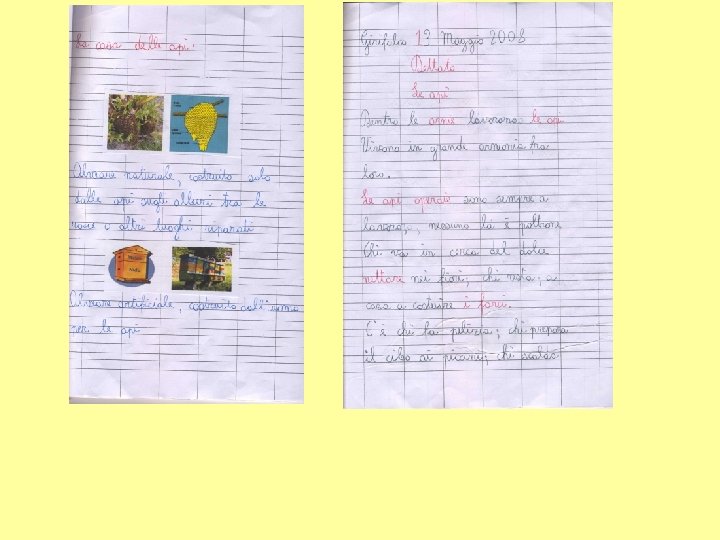 La casa delle api.
Alveare naturale, costruito solo
dalle api sugli alberi tra le
rocce i altri luoghi riparati
Alveare artificiale, costruito dall'uomo
per le api
Girifalco 13 Maggio 2008
Dettato
Le api
Dentro le arnie lavorano le api
Vivono in grande armonia tra
loro.
Le api operaie sono sempre a
lavoro, nessuna là è poltrone
Chi va in cerca del dolce
nettare nei fiori; chi resta, a
casa a costruire i favi.
C'è chi fa pulizia; chi prepara
il cibo ai piccini; chi scalda